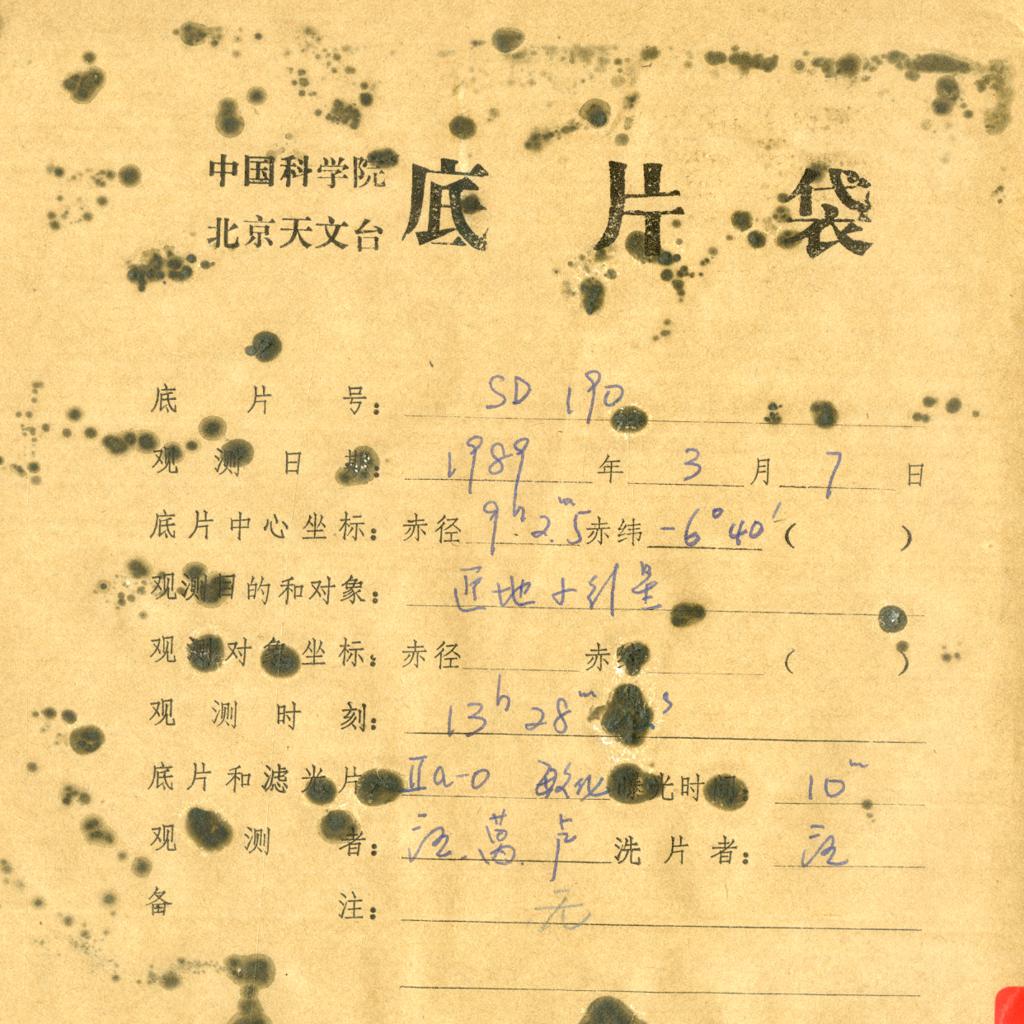 中国科学院
北京天文台
底片袋
底片号：SD 190
观测日期：1989年3月7日
底片中心坐标：赤径 9h 2m.5 赤纬 -6°40′ (      )
观测目的和对象：近地小行星
观测对象坐标：赤径 赤纬 (      )
观测时刻：13h 28m s
底片和滤光片：IIa-O 敏化 曝光时间：10m
观测者：汪. 萬. 卢 洗片者：汪
备注：无